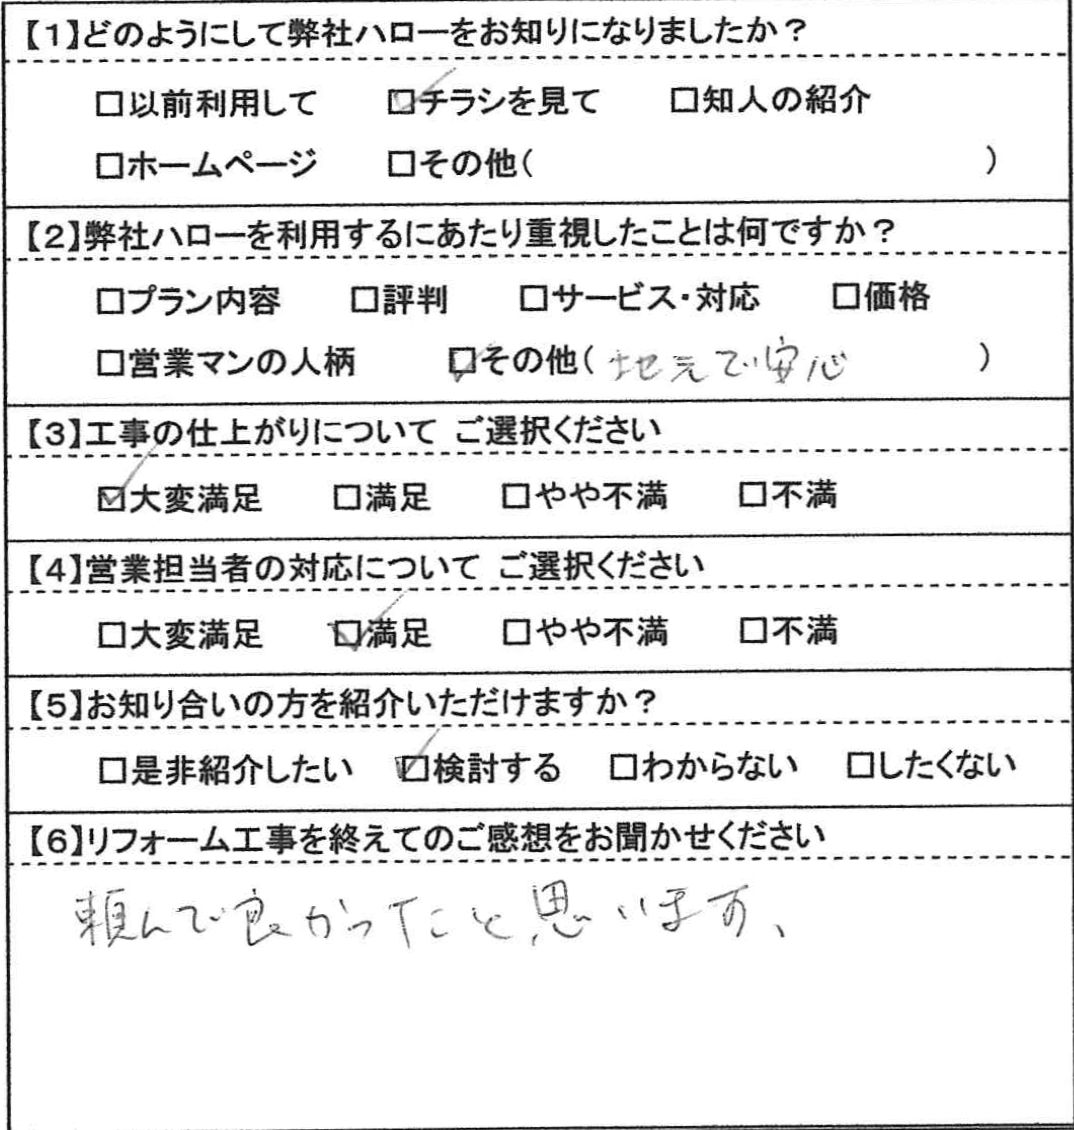 【1】どのようにして弊社ハローをお知りになりましたか？
□以前利用して ☑チラシを見て □知人の紹介
□ホームページ □その他( )
【2】弊社ハローを利用するにあたり重視したことは何ですか？
□プラン内容 □評判 □サービス・対応 □価格
□営業マンの人柄 ☑その他( 地元で安心 )
【3】工事の仕上がりについて ご選択ください
☑大変満足 □満足 □やや不満 □不満
【4】営業担当者の対応について ご選択ください
□大変満足 ☑満足 □やや不満 □不満
【5】お知り合いの方を紹介いただけますか？
□是非紹介したい ☑検討する □わからない □したくない
【6】リフォーム工事を終えてのご感想をお聞かせください
頼んで良かったこと思います、